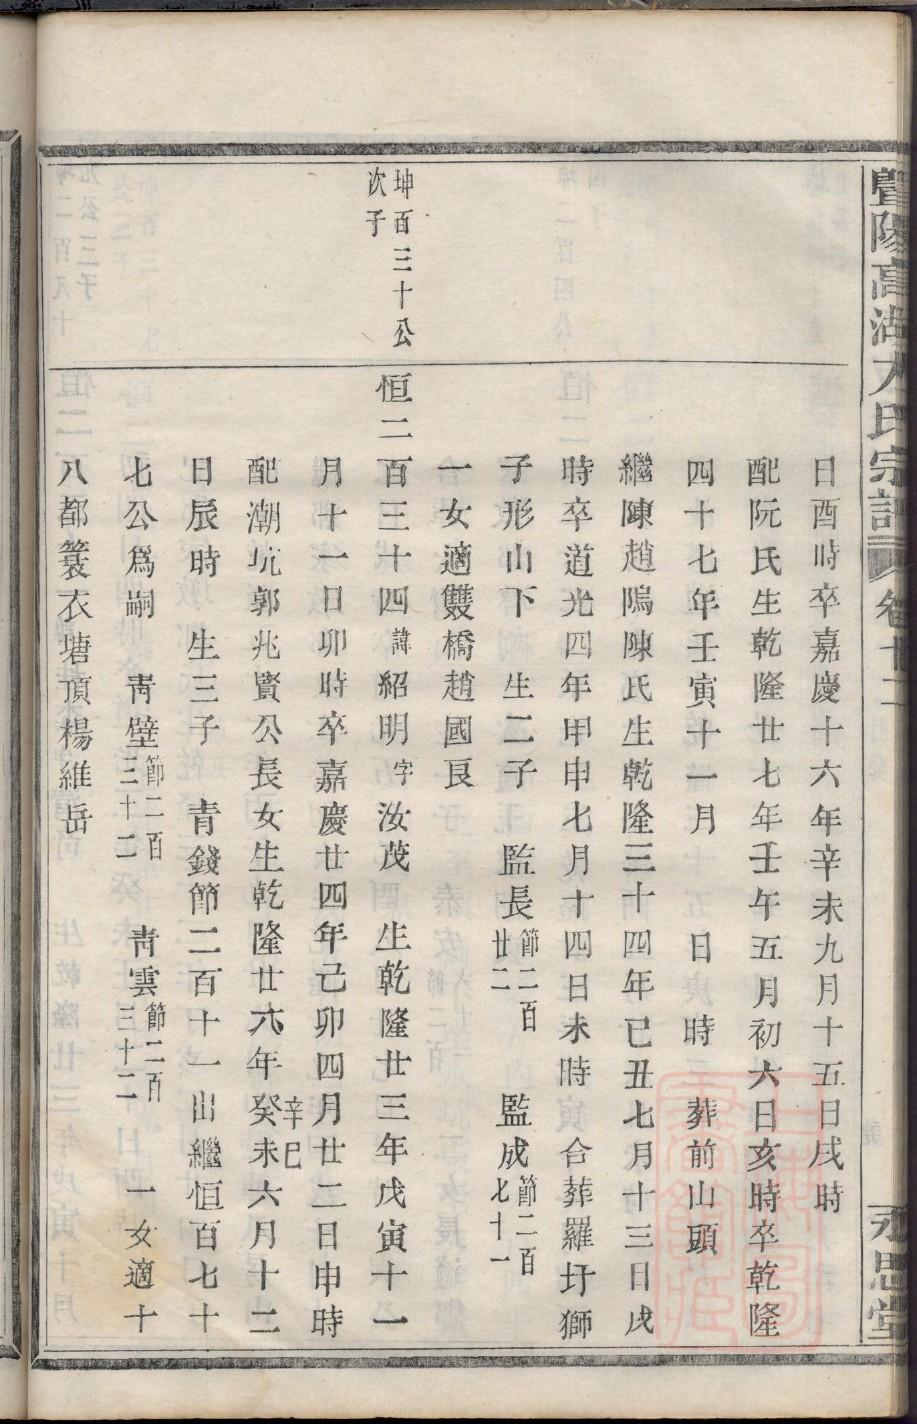 暨陽高湖方氏宗譜 卷十二 永思堂
日酉時卒嘉慶十六年辛未九月十五日戌時
配阮氏生乾隆廿七年壬午五月初六日亥時卒乾隆
四十七年壬寅十一月 日 時 葬前山頭
繼陳趙隝陳氏生乾隆三十四年已丑七月十三日戌
時卒道光四年甲申七月十四日未時 合葬羅圩獅
子形山下 生二子 監長節二百廿二 監成節二百七十一
一女適雙橋趙國良
坤百三十公次子
恒二百三十四諱紹明字汝茂 生乾隆廿三年戊寅十一
月十一日卯時卒嘉慶廿四年己卯四月廿二日申時
配潮坑郭兆賢公長女生乾隆廿六年癸未辛巳六月十二
日辰時 生三子 青錢節二百十一出繼恒百七十
七公爲嗣 靑壁節二百三十一 靑雲節二百三十二 一女適十
八都簑衣塘頂楊維岳